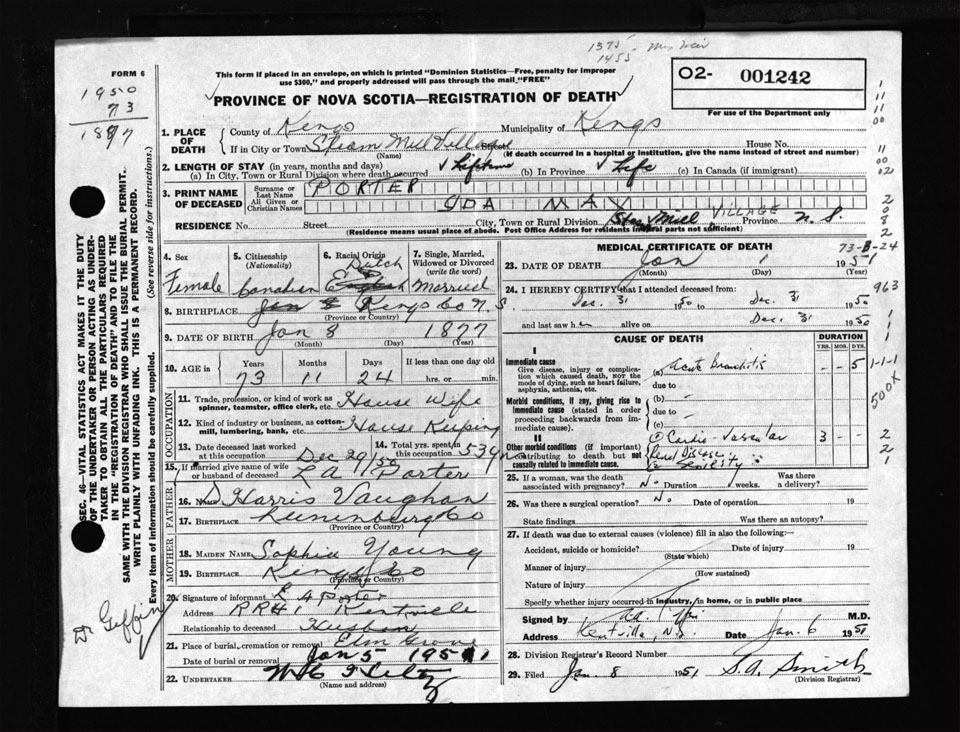 1375 - Mrs
1455
FORM 6
This form if placed in an envelope, on which is printed "Dominion Statistics—Free, penalty for improper
use $300," and properly addressed will pass through the mail "FREE"
O2- 001242
For the use of Department only
PROVINCE OF NOVA SCOTIA—REGISTRATION OF DEATH
1950
73
1877
1. PLACE OF DEATH County of Kings Municipality of Kings
If in City or Town Steam Mill Village Street House No.
(Name) (If death occurred in a hospital or institution, give the name instead of street and number)
2. LENGTH OF STAY (in years, months and days)
(a) In City, Town or Rural Division where death occurred Lifetime (b) In Province Life (c) In Canada (if immigrant)
3. PRINT NAME OF DECEASED Surname or Last Name PORTER
All Given or Christian Names IDA MAY
RESIDENCE No. Street City, Town or Rural Division Steam Mill VILLAGE Province N.S.
(Residence means usual place of abode. Post Office Address for residents in rural parts not sufficient)
4. Sex Female
5. Citizenship (Nationality) Canadian
6. Racial Origin Dutch English
7. Single, Married, Widowed or Divorced (write the word) Married
8. BIRTHPLACE Jan 8 Kings Co N.S.
(Province or Country)
9. DATE OF BIRTH Jan 8 1877
(Month) (Day) (Year)
10. AGE in Years Months Days If less than one day old
73 11 24 hrs. or min.
OCCUPATION
11. Trade, profession, or kind of work as spinner, teamster, office clerk, etc. House Wife
12. Kind of industry or business, as cotton-mill, lumbering, bank, etc. House Keeping
13. Date deceased last worked at this occupation Dec 29/50
14. Total yrs. spent in this occupation 53 yrs
15. If married give name of wife or husband of deceased. L A Porter
FATHER
16. NAME Harris Vaughan
17. BIRTHPLACE Lunenburg Co
(Province or Country)
MOTHER
18. MAIDEN NAME Sophia Young
19. BIRTHPLACE Kings Co
(Province or Country)
20. Signature of informant L A Porter
Address RR#1 Kentville
Relationship to deceased Husban
21. Place of burial, cremation or removal Elm Grove
Date of burial or removal Jan 5 1951
22. UNDERTAKER
(Name and address)
MEDICAL CERTIFICATE OF DEATH
73-B-24
23. DATE OF DEATH Jan 1 1951
(Month) (Day) (Year)
24. I HEREBY CERTIFY that I attended deceased from:
Dec. 31 1950 to Dec. 31 1950
and last saw her alive on Dec. 31 1950
963
CAUSE OF DEATH DURATION
YRS. MOS. DYS.
I
Immediate cause (a) Acute Bronchitis - - 5
Give disease, injury or complication which caused death, not the mode of dying, such as heart failure, asphyxia, asthenia, etc.
due to
1-1-1
Morbid conditions, if any, giving rise to immediate cause (stated in order proceeding backwards from immediate cause).
(b) -
due to -
(c)
501
II
Other morbid conditions (if important) contributing to death but not causally related to immediate cause.
① Cardio-Vascular 3 - -
Renal Disease
② Senility
25. If a woman, was the death associated with pregnancy? No Duration weeks. Was there a delivery?
26. Was there a surgical operation? No Date of operation 19
State findings Was there an autopsy?
27. If death was due to external causes (violence) fill in also the following:—
Accident, suicide or homicide? Date of injury 19
(State which)
Manner of injury
(How sustained)
Nature of injury
Specify whether injury occurred in industry, in home, or in public place
Signed by M.D.
Address Kentville, N.S. Date Jan. 6 1951
28. Division Registrar's Record Number
29. Filed Jan. 8 1951 S. A. Smith
(Division Registrar)
SEC. 46—VITAL STATISTICS ACT MAKES IT THE DUTY
OF THE UNDERTAKER OR PERSON ACTING AS UNDER-
TAKER TO OBTAIN ALL THE PARTICULARS REQUIRED
IN THE "REGISTRATION OF DEATH" AND TO FILE THE
SAME WITH THE DIVISION REGISTRAR WHO SHALL ISSUE THE BURIAL PERMIT.
WRITE PLAINLY WITH UNFADING INK. THIS IS A PERMANENT RECORD.
Every item of information should be carefully supplied. (See reverse side for instructions.)
Dr Giffin